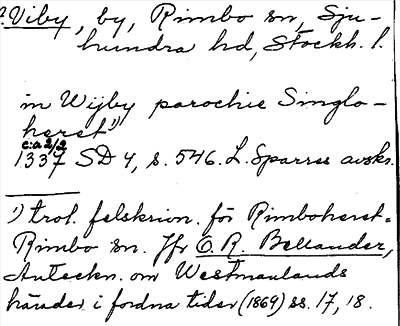 ?. Viby, by, Rimbo sn, Sju-
hundra hd, Stockh. l.
in Wijby parochie Singlo-
herst¹)
c:a 2/2
1337 SD 4, s. 546. L. Sparres avskr.
¹) trol. felskrivn. för Rimboherst =
Rimbo sn. Jfr C. R. Bellander,
Anteckn. om Westmanlands
härader i fordna tider (1869) ss. 17, 18.